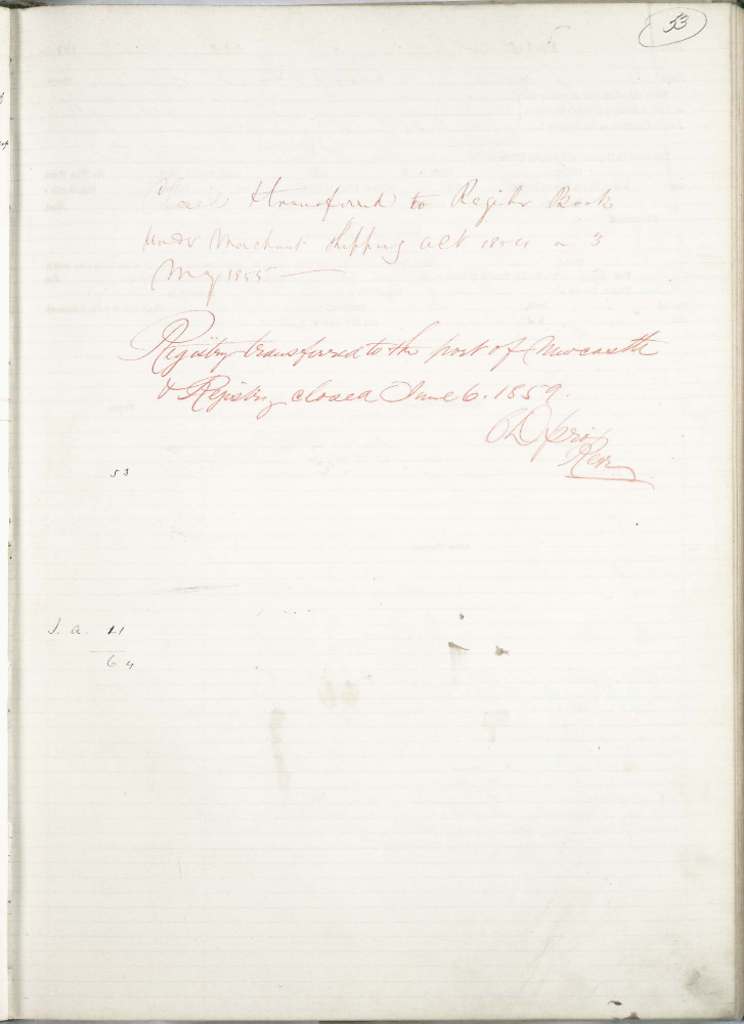 53
Closed & transferred to Register Book
under Merchant Shipping Act 1854 on 3
May 1855
Registry transferred to the port of Newcastle
& Registry closed June 6. 1859.
Regr
53
J. a. 11
64